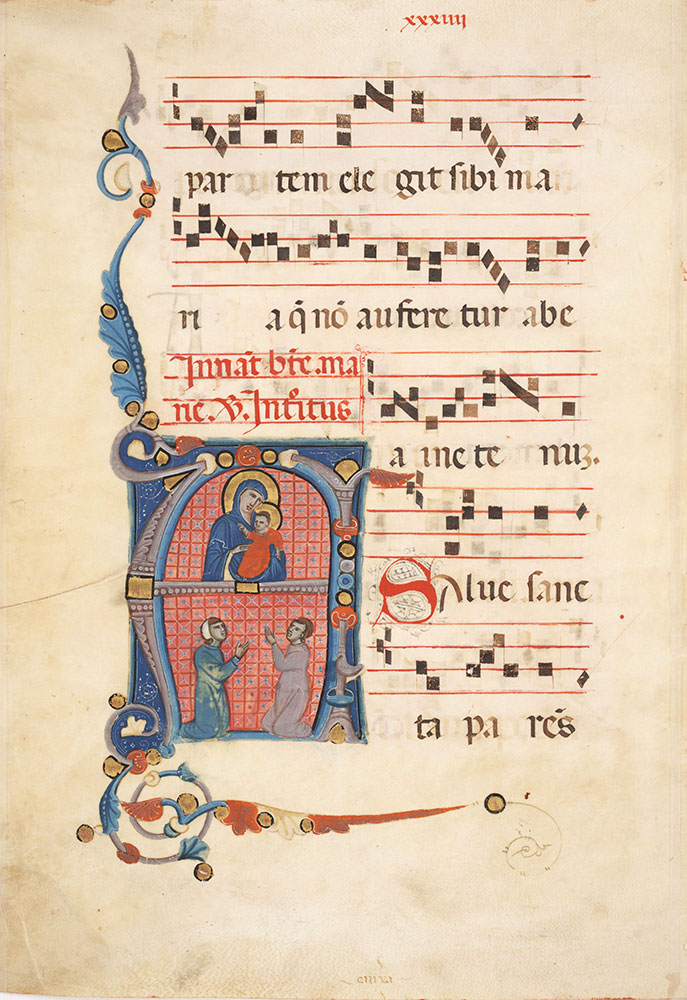 xxxiiii
par tem ele git sibi ma
ri a q̄ nō au fere tur abe
Jn nat̄ bt̄e. ma
rie. V. Int̄itus
a in e te nuz.
Salue sanc
ta pa rēs